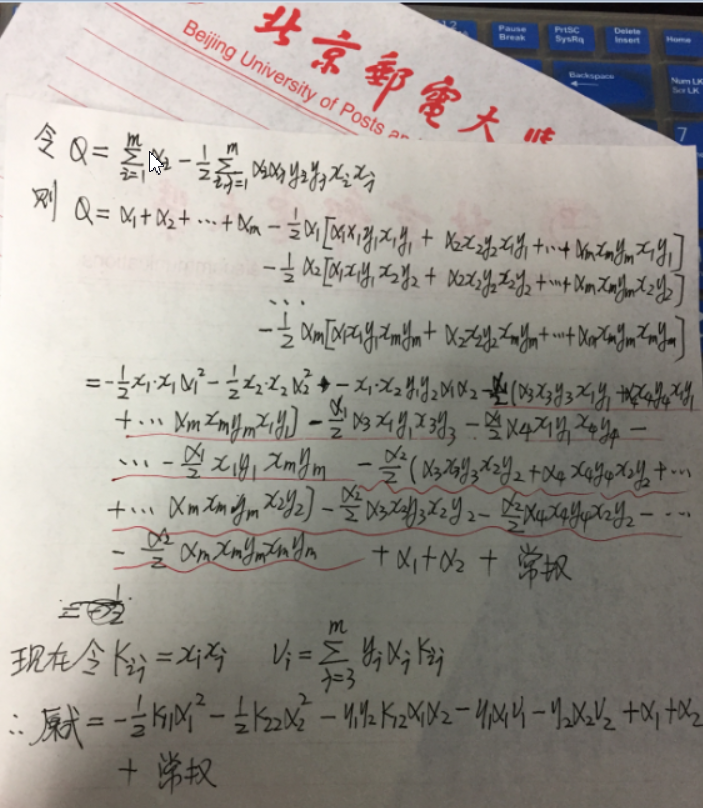 北京郵電大
Beijing University of Posts an
Pause
Break
PrtSC
SysRq
Delete
Insert
Home
Backspace
Num LK
Scr LK
7
令 Q = ∑_{i=1}^{m} α_i - 1/2 ∑_{i,j=1}^{m} α_iα_jy_iy_jx_ix_j
则 Q = α₁ + α₂ + ⋯ + αm - 1/2 α₁[α₁x₁y₁x₁y₁ + α₂x₂y₂x₁y₁ + ⋯ + αmxmymx₁y₁]
- 1/2 α₂[α₁x₁y₁x₂y₂ + α₂x₂y₂x₂y₂ + ⋯ + αmxmymx₂y₂]
⋯
- 1/2 αm[α₁x₁y₁xmym + α₂x₂y₂xmym + ⋯ + αmxmymxmym]
= -1/2 x₁·x₁α₁² - 1/2 x₂·x₂α₂² - x₁·x₂y₁y₂α₁α₂ - α₁/2 (α₃x₃y₃x₁y₁ + α₄x₄y₄x₁y₁
+ ⋯ αmxmymx₁y₁] - α₁/2 α₃x₁y₁x₃y₃ - α₁/2 α₄x₁y₁x₄y₄ -
⋯ - α₁/2 x₁y₁xmym - α₂/2 (α₃x₃y₃x₂y₂ + α₄x₄y₄x₂y₂ + ⋯
+ ⋯ αmxmymx₂y₂] - α₂/2 α₃x₃y₃x₂y₂ - α₂/2 α₄x₄y₄x₂y₂ - ⋯
- α₂/2 αmxmymxmym + α₁ + α₂ + 常数
现在令 K_{ij} = x_ix_j v_i = ∑_{j=3}^{m} y_jα_jK_{ij}
∴ 原式 = -1/2 K₁₁α₁² - 1/2 K₂₂α₂² - y₁y₂K₁₂α₁α₂ - y₁α₁v₁ - y₂α₂v₂ + α₁ + α₂
+ 常数